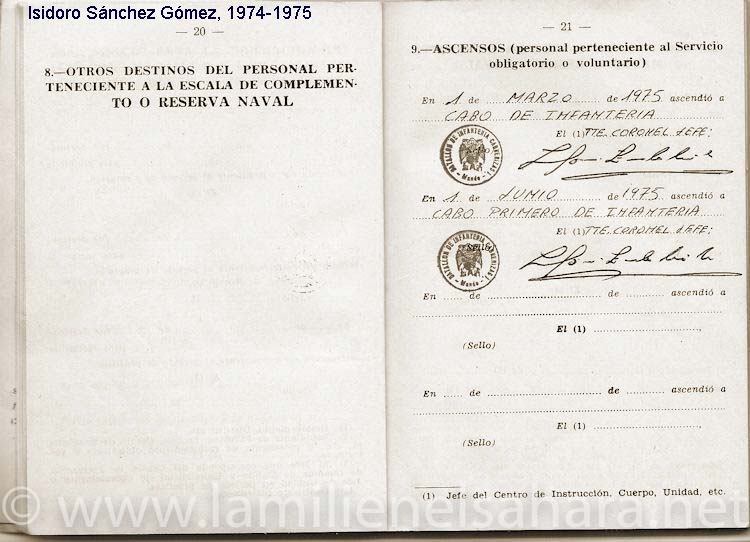 Isidoro Sánchez Gómez, 1974-1975
— 20 —
8.—OTROS DESTINOS DEL PERSONAL PER-
TENECIENTE A LA ESCALA DE COMPLEMEN-
TO O RESERVA NAVAL
— 21 —
9.—ASCENSOS (personal perteneciente al Servicio
obligatorio o voluntario)
En 1 de MARZO de 1975 ascendió a
CABO DE INFANTERIA
El (1) TTE. CORONEL JEFE;
BATALLON DE INFANTERIA CABRERIZAS I
- Mando -
En 1 de JUNIO de 1975 ascendió a
CABO PRIMERO DE INFANTERIA
El (1) TTE. CORONEL JEFE;
BATALLON DE INFANTERIA CABRERIZAS I
- Mando -
En ...... de .................................. de ............ ascendió a
El (1) ............................,
(Sello)
En ...... de .................................. de ............ ascendió a
El (1) ............................,
(Sello)
(1) Jefe del Centro de Instrucción, Cuerpo, Unidad, etc.
© www.lamilienelsahara.net